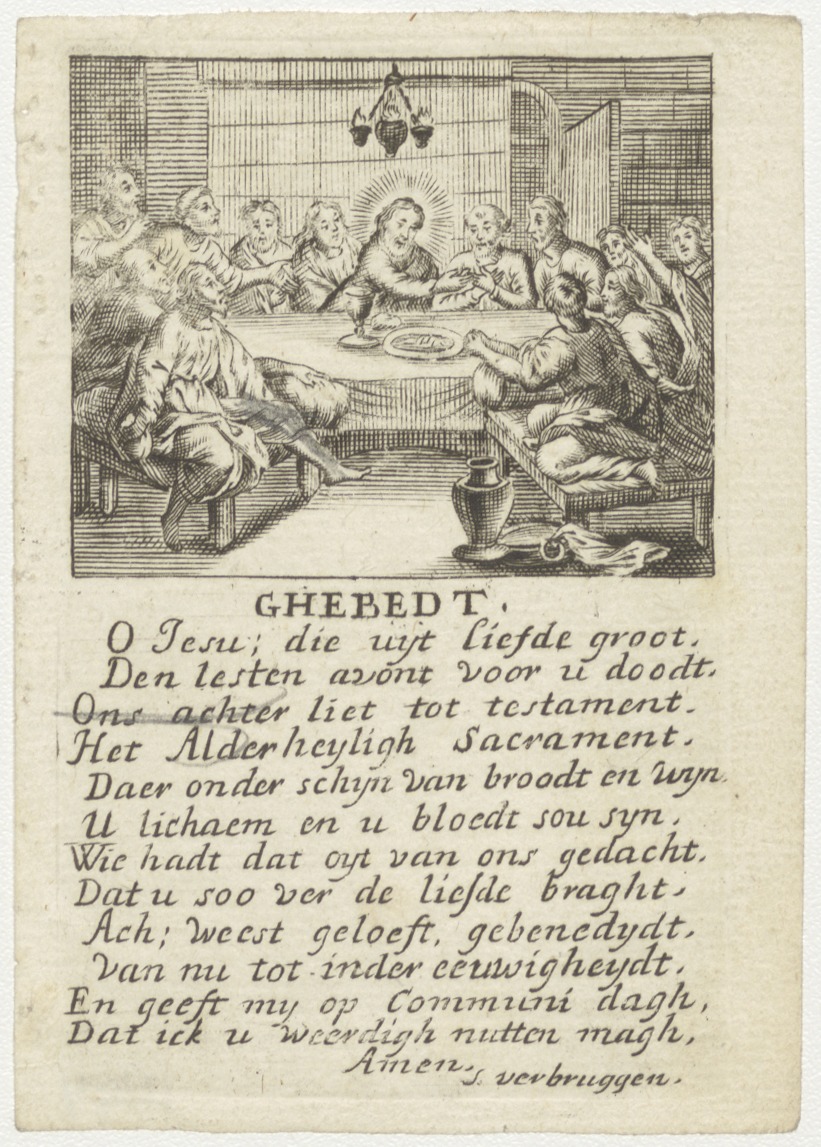 GHEBEDT.
O Jesu; die uyt liefde groot.
Den lesten avont voor u doodt.
Ons achter liet tot testament.
Het Alderheyligh Sacrament.
Daer onder schijn van broodt en wyn.
U lichaem en u bloedt sou syn.
Wie hadt dat oyt van ons gedacht.
Dat u soo ver de liefde braght.
Ach; weest geloeft, gebenedydt.
Van nu tot inder eeuwigheydt.
En geeft my op Communi dagh,
Dat ick u weerdigh nutten magh,
Amen.
s. verbruggen.